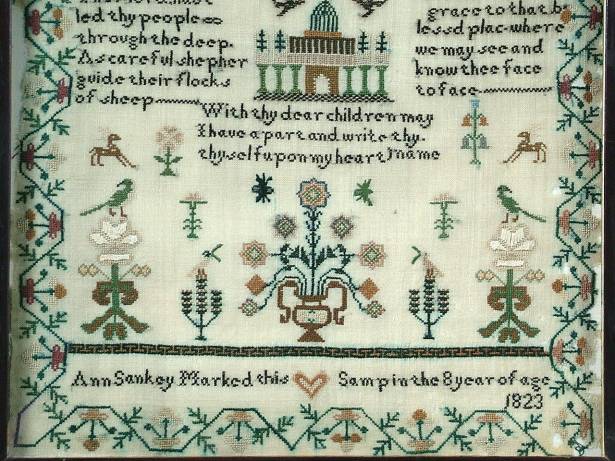 led thy people
through the deep.
As careful shepher
guide their flocks
of sheep
grace to that b
lessd plac-where
we may see and
know thee face
to face
With thy dear children may
I have a part and write thy.
thy self upon my heart name
Ann Sankey Marked this Samp in the 8 year of age
1823